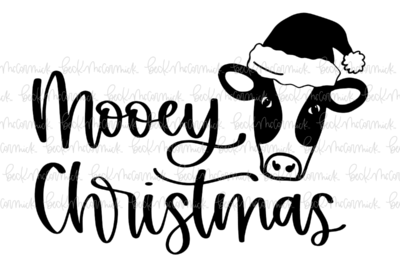 Mooey
Christmas